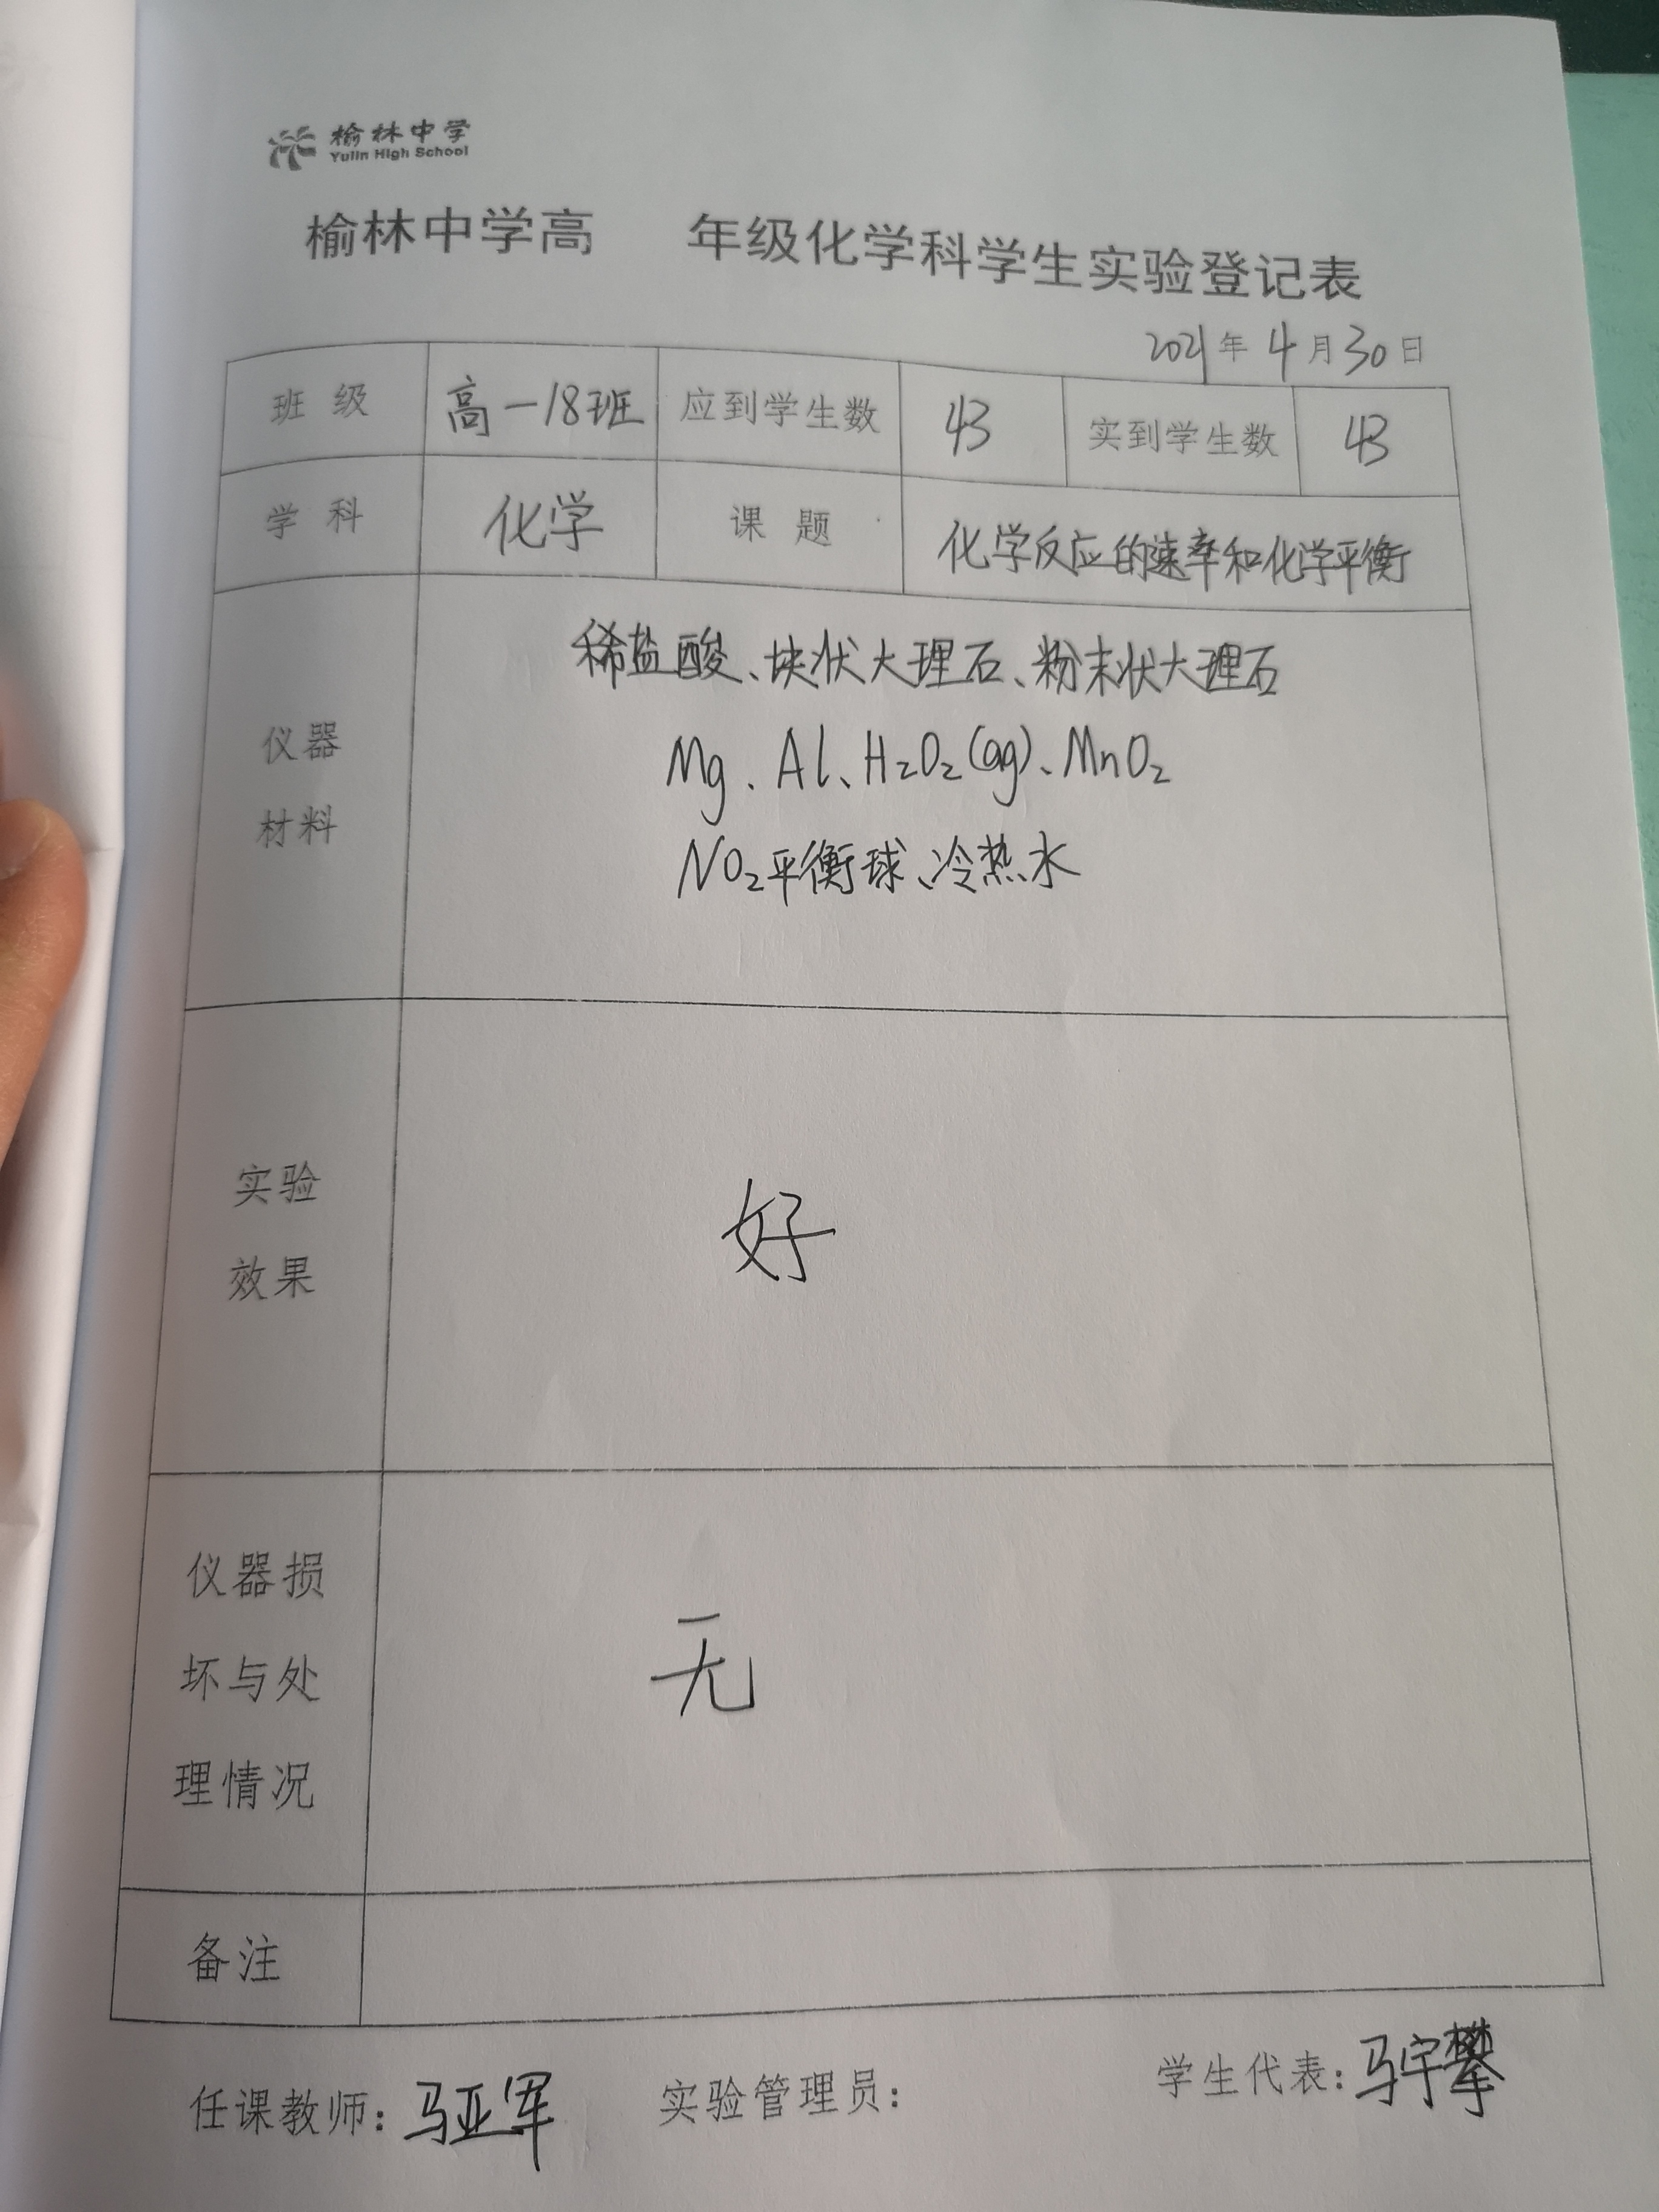 榆林中学
Yulin High School
榆林中学高 年级化学科学生实验登记表
2021年4月30日
班级 高一18班 应到学生数 43 实到学生数 43
学科 化学 课题 化学反应的速率和化学平衡
稀盐酸、块状大理石、粉末状大理石
仪器 Mg、Al、H₂O₂(aq)、MnO₂
材料 NO₂平衡球、冷热水
实验
好
效果
仪器损
坏与处 无
理情况
备注
任课教师：马亚军 实验管理员： 学生代表：马宇攀